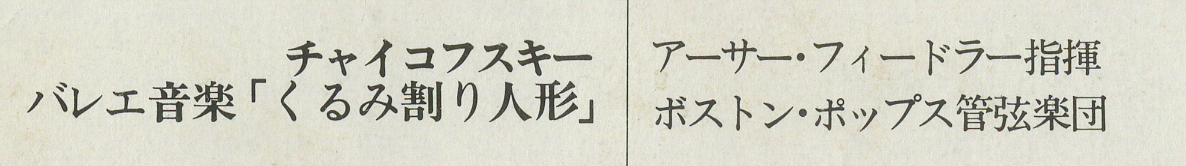 チャイコフスキー
バレエ音楽「くるみ割り人形」
アーサー・フィードラー指揮
ボストン・ポップス管弦楽団